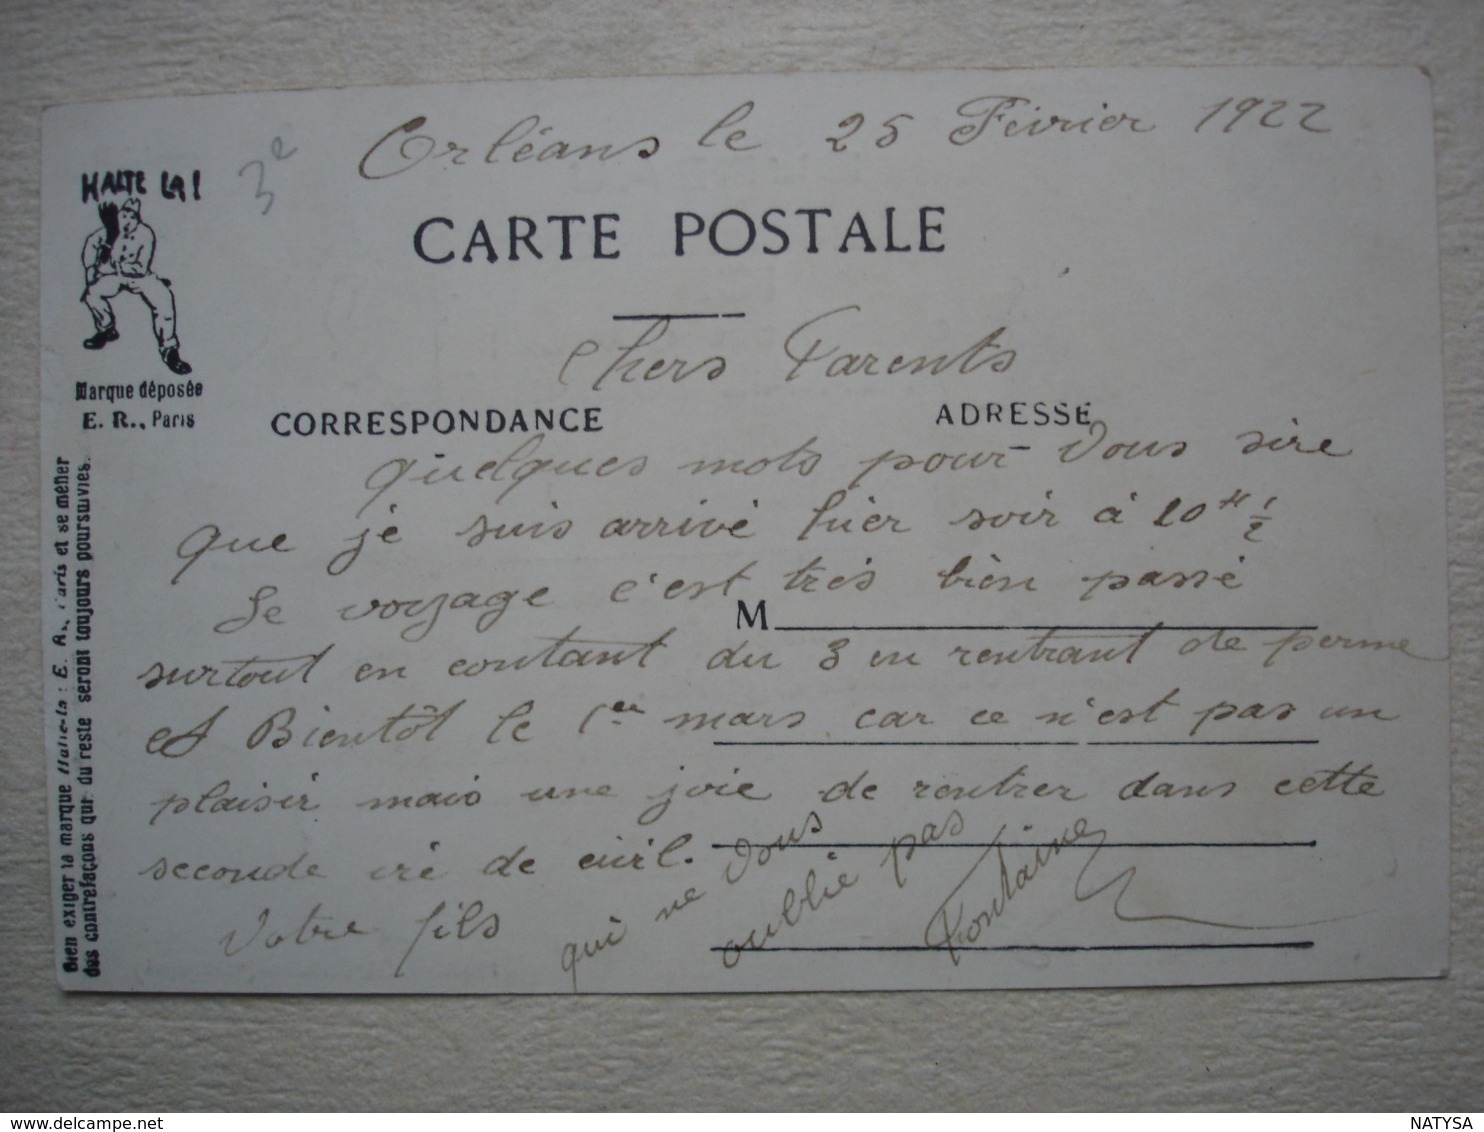 Orléans le 25 Février 1922
3e
HALTE LA !
CARTE POSTALE
Marque déposée
E. R., Paris
Chers Parents
CORRESPONDANCE
ADRESSE
quelques mots pour Vous dire
que je suis arrivé hier soir à 10 H 1/2
Le voyage c'est très bien passé
M
surtout en contant du 3 en rentrant de perme
et Bientôt le 1er mars car ce n'est pas un
plaisir mais une joie de rentrer dans cette
seconde vie de civil.
Votre fils
qui ne Vous
oublie pas
Fontaine
Bien exiger la marque Halte-là : E. R., Paris et se méfier
des contrefaçons qui du reste seront toujours poursuivies.
NATYSA